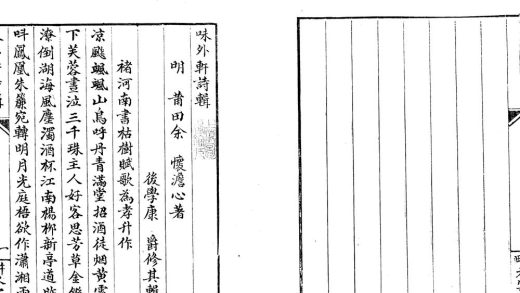 味外軒詩輯
明 莆田余 懷澹心著
後學康 爵修其輯
褚河南書枯樹賦歌為孝升作
凉飈颯颯山鳥呼丹青滿堂招酒徒烟黃
下芙蓉晝泣三千珠主人好客思芳草金
潦倒湖海風塵濁酒杯江南楊柳新亭道
鳳凰朱簾宛轉明月光庭梧欲作瀟湘
一